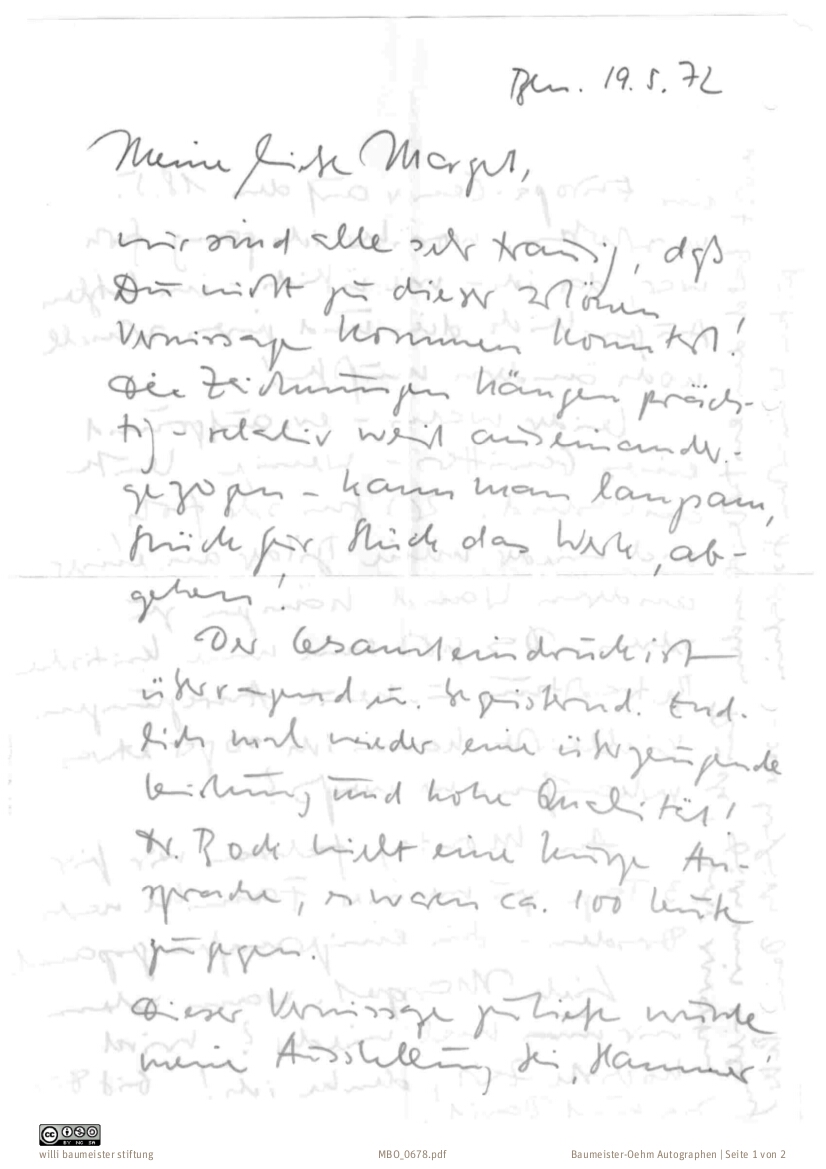 Bln. 19.5.72
Meine liebe Margot,
wir sind alle sehr traurig, daß
Du nicht zu dieser schönen
Vernissage kommen konntest!
Die Zeichnungen hängen präch-
tig – relativ weit auseinander-
gezogen – kann man langsam,
Stück für Stück das Werk „ab-
gehen"!
Der Gesamteindruck ist
überragend u. begeisternd. End-
lich mal wieder eine überzeugende
Leistung und hohe Qualität!
Dr. Bock hielt eine kurze An-
sprache, es waren ca. 100 Leute
zugegen.
Dieser Vernissage zuliebe wurde
meine Ausstellung bei „Hammer"
willi baumeister stiftung
MBO_0678.pdf
Baumeister-Oehm Autographen | Seite 1 von 2